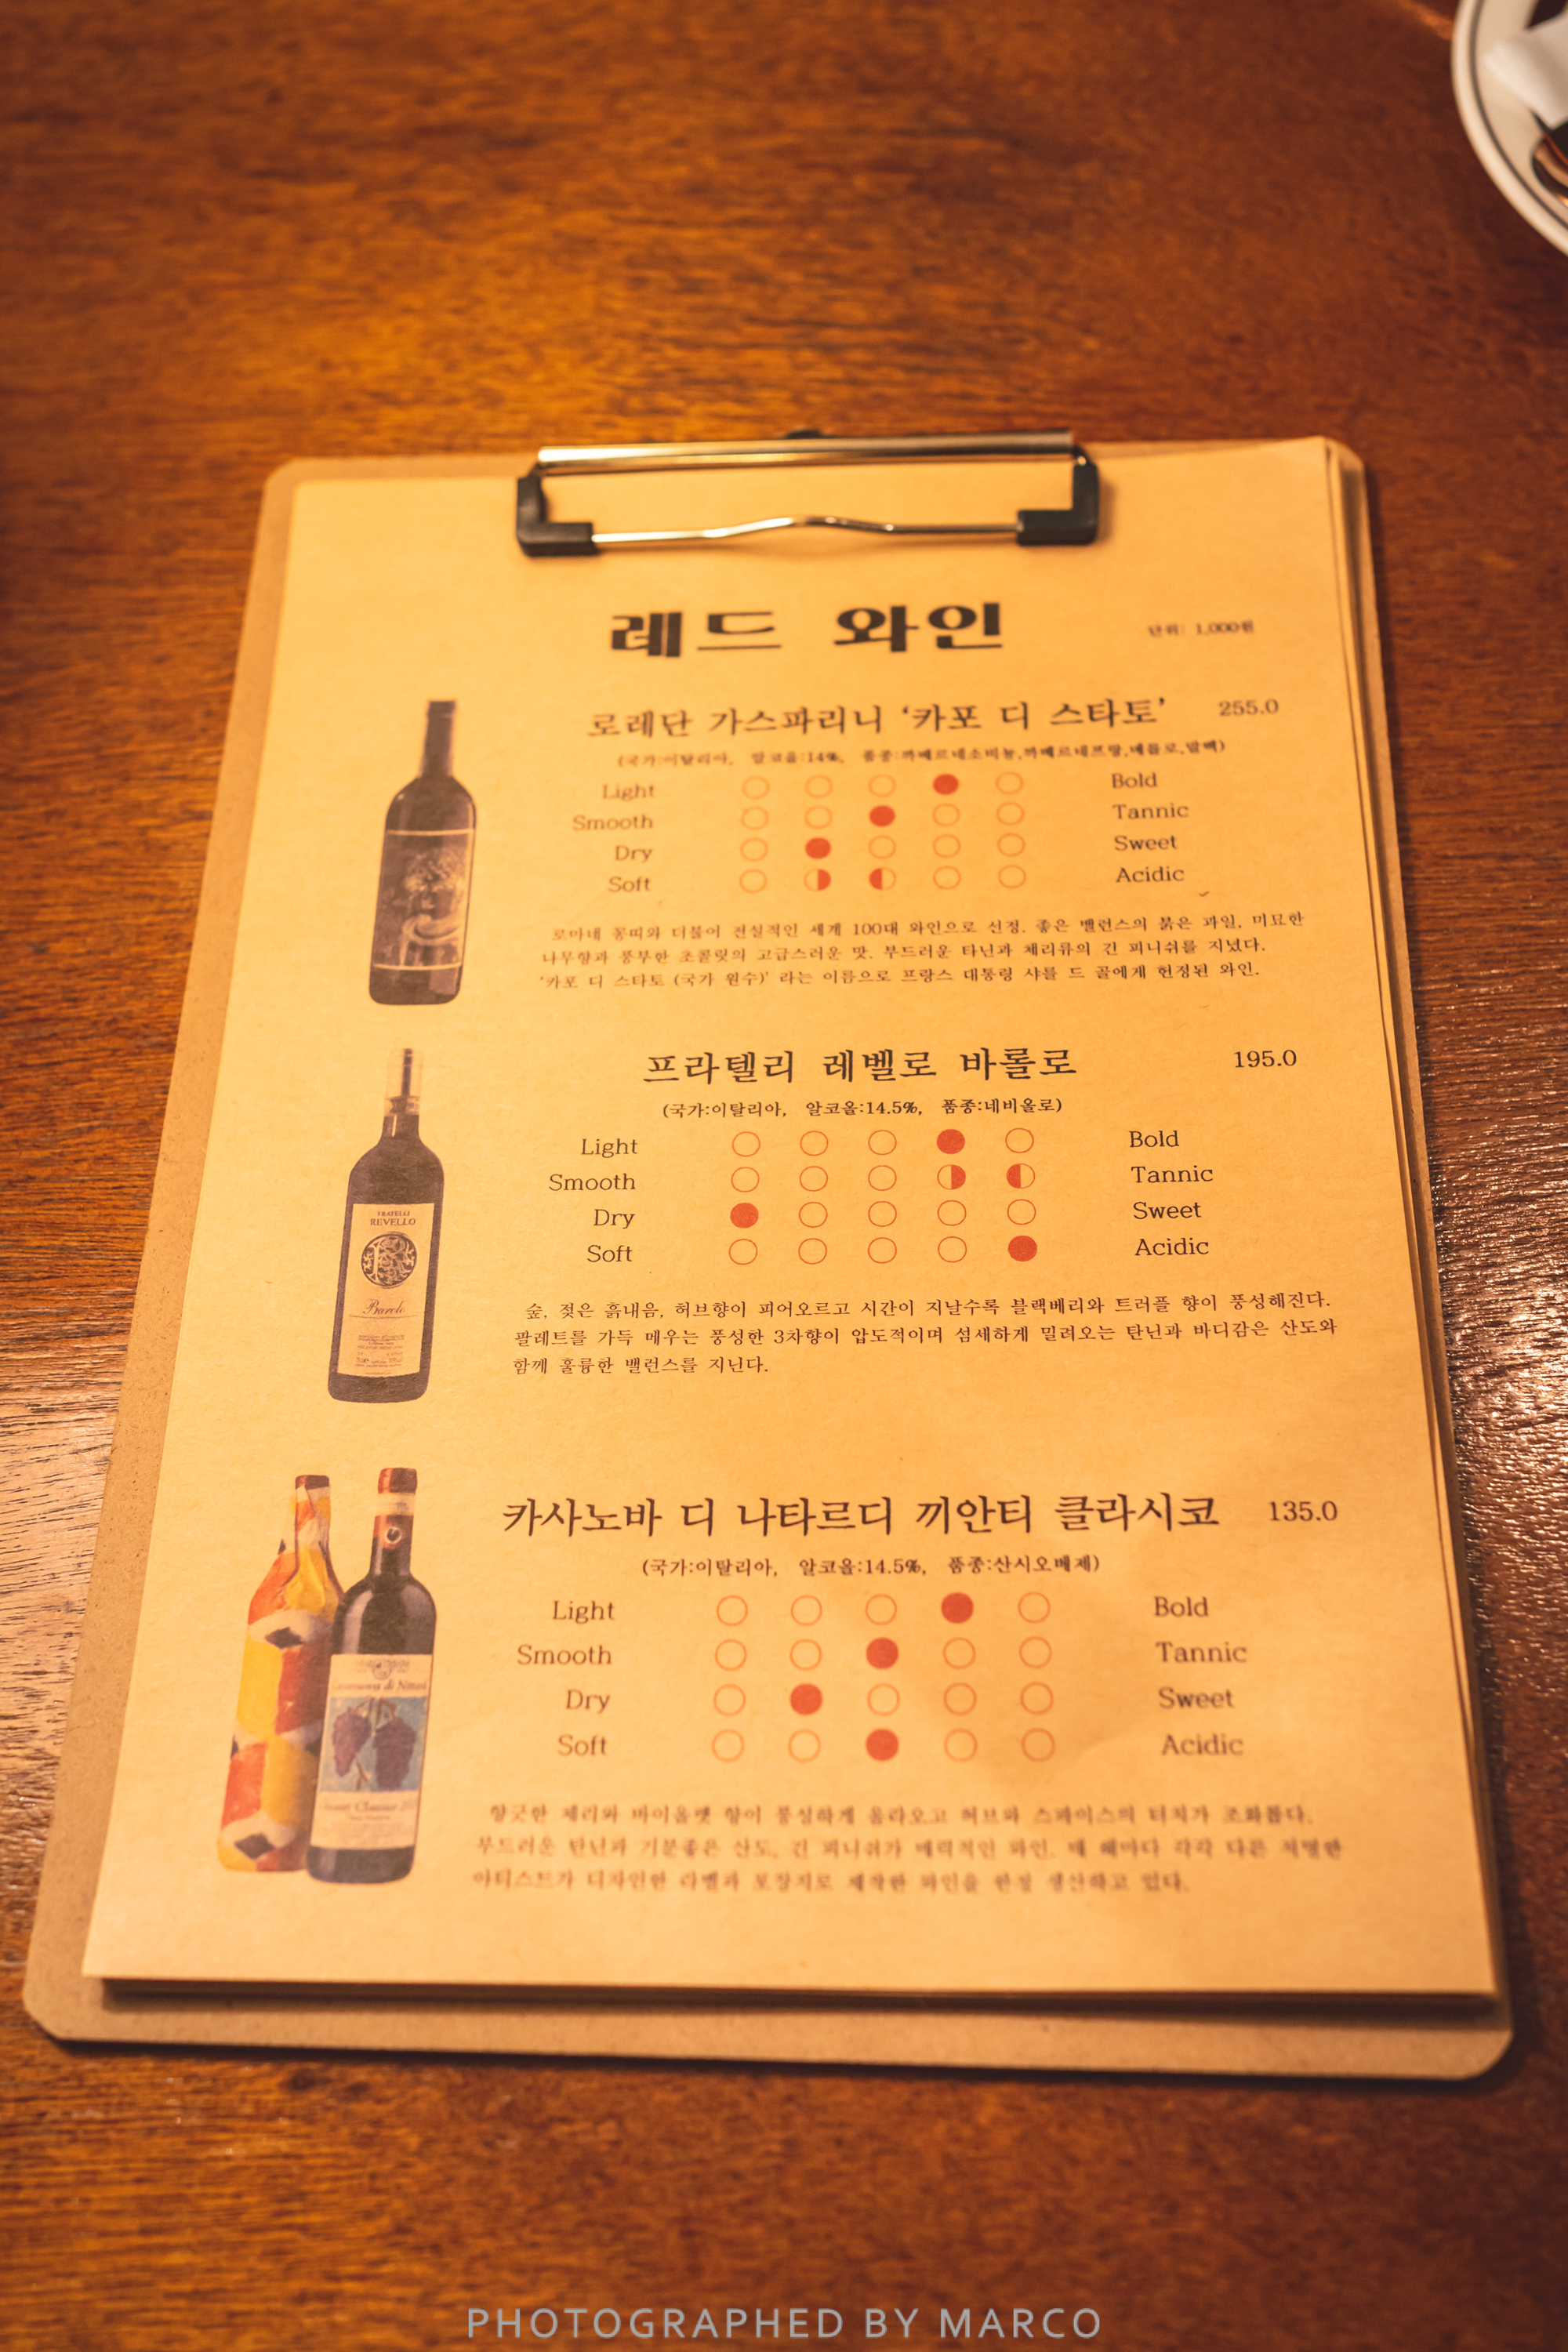 레드 와인
단위: 1,000원
로레단 가스파리니 ‘카포 디 스타토’ 255.0
(국가:이탈리아, 알코올:14%, 품종:까베르네소비뇽,까베르네프랑,메를로,말벡)
Light Bold
Smooth Tannic
Dry Sweet
Soft Acidic
로마네 꽁띠와 더불어 전설적인 세계 100대 와인으로 선정. 좋은 밸런스의 붉은 과일, 미묘한
나무향과 풍부한 초콜릿의 고급스러운 맛. 부드러운 타닌과 체리류의 긴 피니쉬를 지녔다.
‘카포 디 스타토 (국가 원수)’ 라는 이름으로 프랑스 대통령 샤를 드 골에게 헌정된 와인.
FRATELLI
REVELLO
Barolo
프라텔리 레벨로 바롤로 195.0
(국가:이탈리아, 알코올:14.5%, 품종:네비올로)
Light Bold
Smooth Tannic
Dry Sweet
Soft Acidic
숲, 젖은 흙내음, 허브향이 피어오르고 시간이 지날수록 블랙베리와 트러플 향이 풍성해진다.
팔레트를 가득 메우는 풍성한 3차향이 압도적이며 섬세하게 밀려오는 탄닌과 바디감은 산도와
함께 훌륭한 밸런스를 지닌다.
카사노바 디 나타르디 끼안티 클라시코 135.0
(국가:이탈리아, 알코올:14.5%, 품종:산시오베제)
Light Bold
Smooth Tannic
Dry Sweet
Soft Acidic
di Nittardi
향긋한 체리와 바이올렛 향이 풍성하게 올라오고 허브와 스파이스의 터치가 조화롭다.
부드러운 탄닌과 기분좋은 산도, 긴 피니쉬가 매력적인 와인. 매 해마다 각각 다른 저명한
아티스트가 디자인한 라벨과 포장지로 제작한 와인을 한정 생산하고 있다.
PHOTOGRAPHED BY MARCO